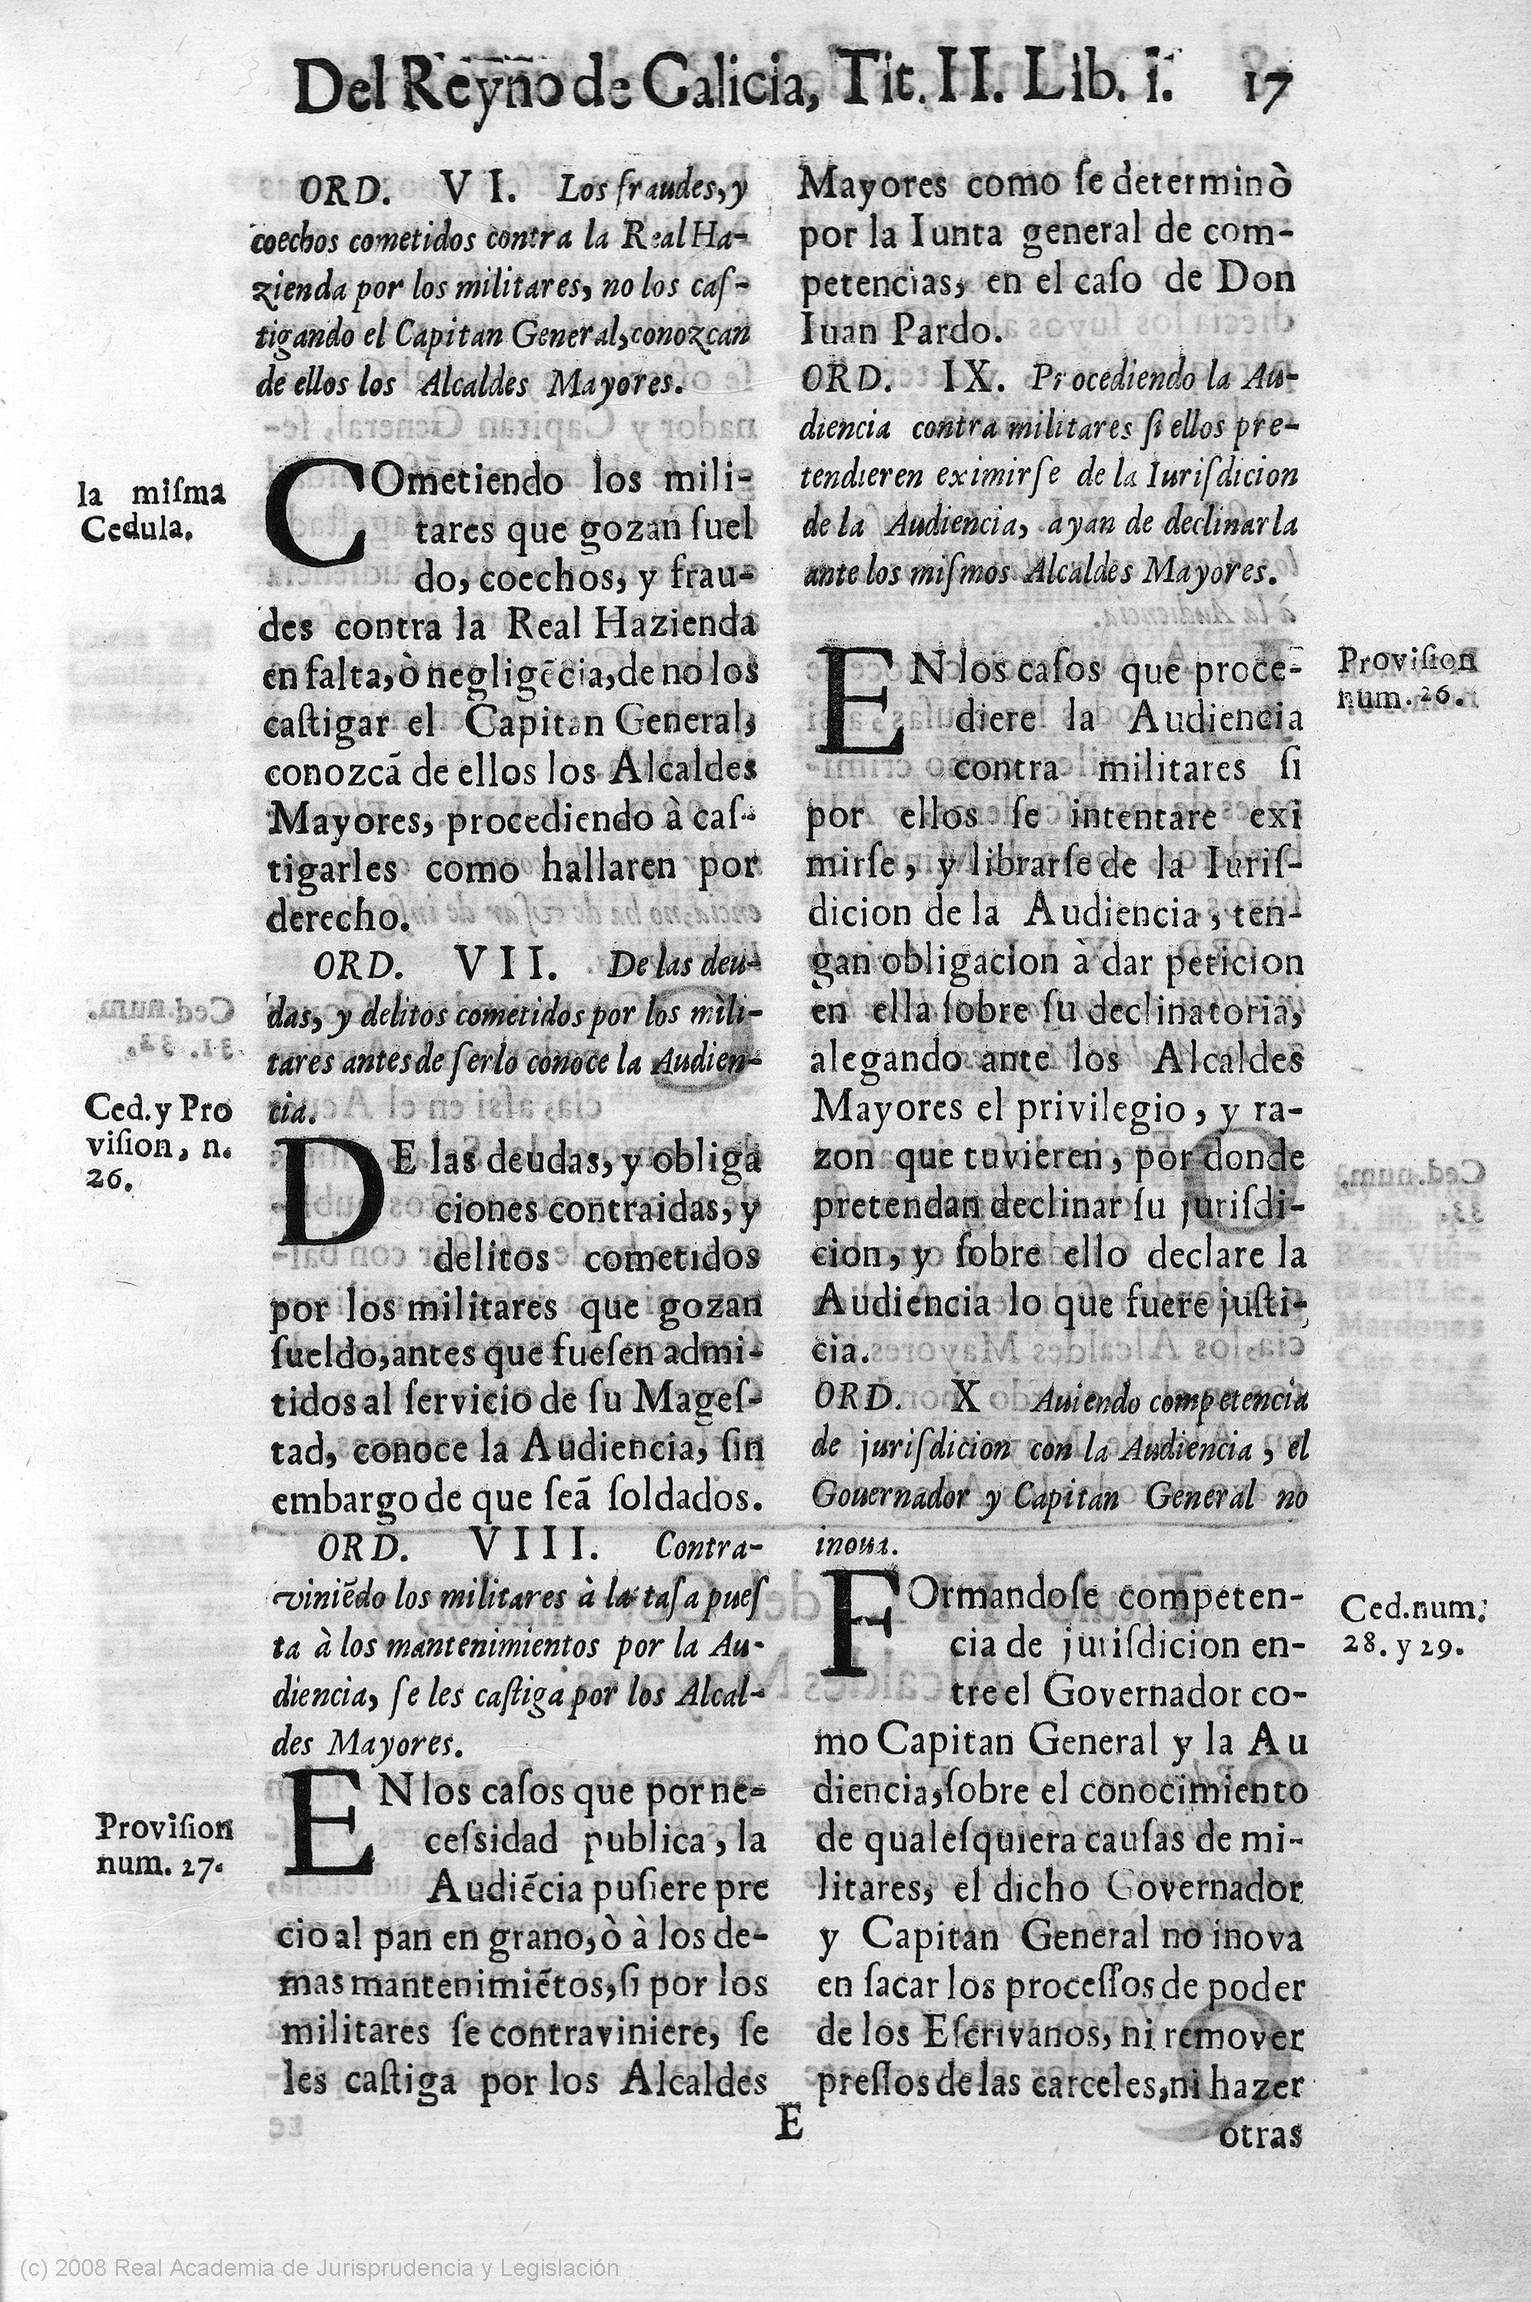 Del Reyno de Galicia, Tit. II. Lib. i. 17
ORD. VI. Los fraudes, y
coechos cometidos contra la Real Ha-
zienda por los militares, no los caſ-
tigando el Capitan General, conozcan
de ellos los Alcaldes Mayores.
la miſma
Cedula.
COmetiendo los mili-
tares que gozan ſuel
do, coechos, y frau-
des contra la Real Hazienda
en falta, ò negligēcia, de no los
caſtigar el Capitan General,
conozcā de ellos los Alcaldes
Mayores, procediendo à caſ-
tigarles como hallaren por
derecho.
ORD. VII. De las deu-
das, y delitos cometidos por los mili-
tares antes de ſerlo conoce la Audien-
cia.
Ced. y Pro
viſion, n.
26.
DE las deudas, y obliga
ciones contraidas, y
delitos cometidos
por los militares que gozan
ſueldo, antes que fueſen admi-
tidos al ſervicio de ſu Mageſ-
tad, conoce la Audiencia, ſin
embargo de que ſeā ſoldados.
ORD. VIII. Contra-
viniēdo los militares à la taſa pueſ
ta à los mantenimientos por la Au-
diencia, ſe les caſtiga por los Alcal-
des Mayores.
Proviſion
num. 27.
EN los caſos que por ne-
ceſsidad publica, la
Audiēcia puſiere pre
cio al pan en grano, ò à los de-
mas mantenimiētos, ſi por los
militares ſe contraviniere, ſe
les caſtiga por los Alcaldes
Mayores como ſe determinò
por la Iunta general de com-
petencias, en el caſo de Don
Iuan Pardo.
ORD. IX. Procediendo la Au-
diencia contra militares ſi ellos pre-
tendieren eximirſe de la Iuriſdicion
de la Audiencia, ayan de declinarla
ante los miſmos Alcaldes Mayores.
Proviſion
num. 26.
EN los caſos que proce-
diere la Audiencia
contra militares ſi
por ellos ſe intentare exi
mirſe, y librarſe de la Iuriſ-
dicion de la Audiencia, ten-
gan obligacion à dar peticion
en ella ſobre ſu declinatoria,
alegando ante los Alcaldes
Mayores el privilegio, y ra-
zon que tuvieren, por donde
pretendan declinar ſu juriſdi-
cion, y ſobre ello declare la
Audiencia lo que fuere juſti-
cia.
ORD. X Auiendo competencia
de juriſdicion con la Audiencia, el
Gouernador y Capitan General no
inoua.
Ced. num.
28. y 29.
FOrmandoſe competen-
cia de juriſdicion en-
tre el Governador co-
mo Capitan General y la Au
diencia, ſobre el conocimiento
de qualeſquiera cauſas de mi-
litares, el dicho Governador
y Capitan General no inova
en ſacar los proceſſos de poder
de los Eſcrivanos, ni remover
preſſos de las carceles, ni hazer
E
otras
(c) 2008 Real Academia de Jurisprudencia y Legislación